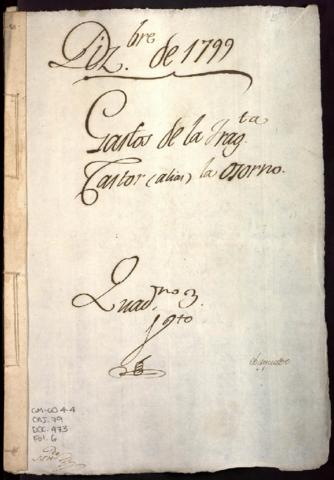 Diz.bre de 1799
Gastos de la Frag.ta
Castor (alias) la Osorno.
Quad.no 3.
CM-CO 4-4
CAJ. 79
DOC. 473
Fol. 6